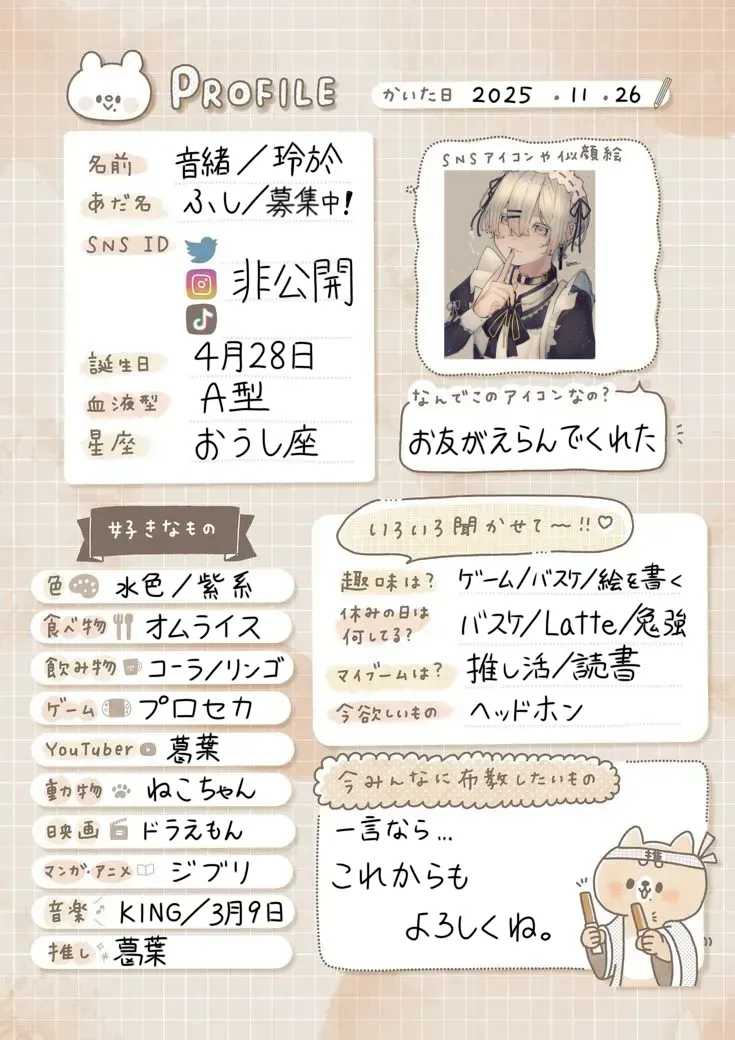 PROFILE
かいた日 2025 . 11 . 26
名前 音緒／玲於
あだ名 ふし／募集中!
SNS ID
非公開
誕生日 4月28日
血液型 A型
星座 おうし座
SNSアイコンや似顔絵
なんでこのアイコンなの?
お友がえらんでくれた
好きなもの
色 水色／紫系
食べ物 オムライス
飲み物 コーラ/リンゴ
ゲーム プロセカ
YouTuber 葛葉
動物 ねこちゃん
映画 ドラえもん
マンガ・アニメ ジブリ
音楽 KING／3月9日
推し 葛葉
いろいろ聞かせて〜!!♡
趣味は? ゲーム/バスケ/絵を書く
休みの日は
何してる? バスケ/Latte/勉強
マイブームは? 推し活/読書
今欲しいもの ヘッドホン
今みんなに布教したいもの
一言なら...
これからも
よろしくね。
推